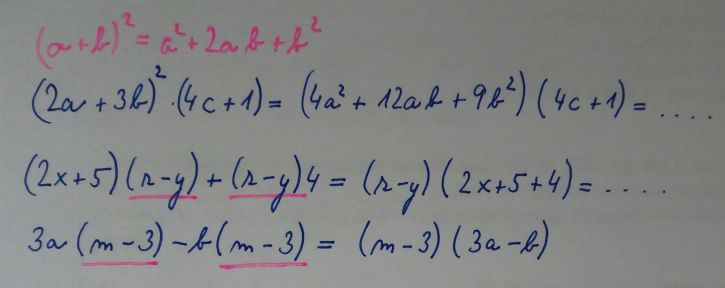 (a+b)² = a² + 2ab + b²
(2a + 3b)² · (4c + 1) = (4a² + 12ab + 9b²) (4c + 1) = ....
(2x + 5) (r - y) + (r - y) 4 = (r - y) (2x + 5 + 4) = ....
3a (m - 3) - b (m - 3) = (m - 3) (3a - b)